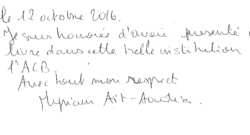 le 12 octobre 2016,
Je suis honorée d'avoir présenté
livre dans cette belle institution
l'ACB.
Avec tout mon respect
Myriam Aït-